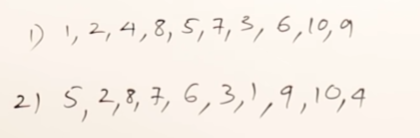 1) 1, 2, 4, 8, 5, 7, 3, 6, 10, 9
2) 5, 2, 8, 7, 6, 3, 1, 9, 10, 4